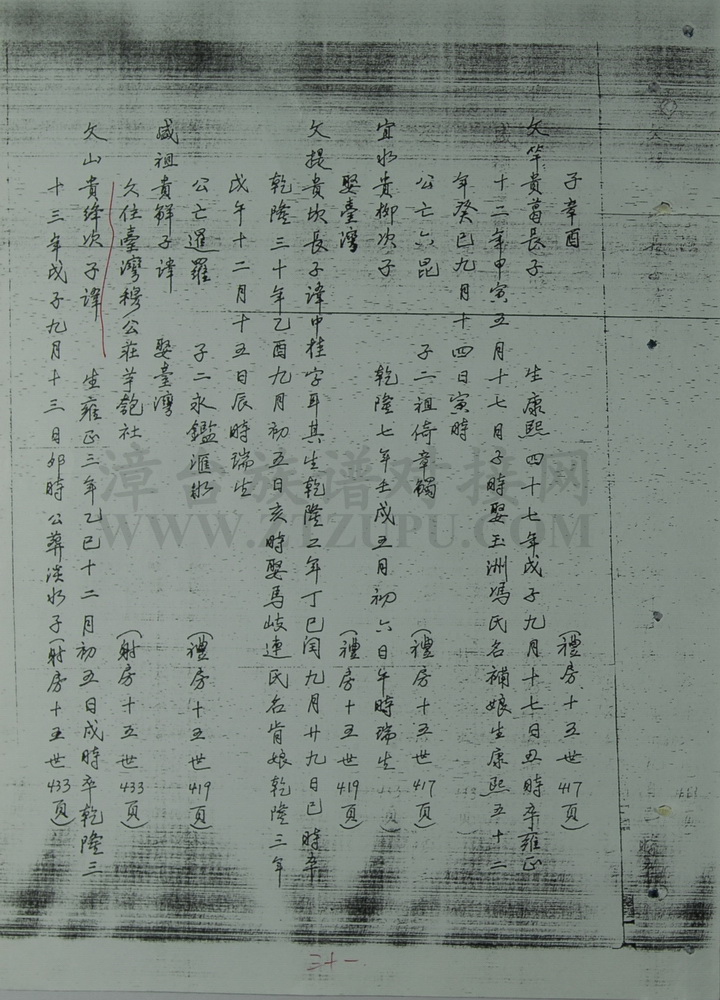 子辛酉
（禮房十五世417頁）
文竿貴葛長子 生康熙四十七年戊子九月十七日丑時卒雍正
十二年甲寅五月十七日子時娶玉洲馮氏名補娘生康熙五十二
年癸巳九月十四日寅時
公亡六昆 子二祖倚章獨 （禮房十五世417頁）
宜水貴柳次子 乾隆七年壬戌五月初六日午時瑞生
娶臺灣 （禮房十五世419頁）
文提貴坎長子諱中桂字耳其生乾隆二年丁巳閏九月廿九日巳時卒
乾隆三十年乙酉九月初五日亥時娶馬岐連氏名肯娘乾隆三年
戊午十二月十五日辰時瑞生
公亡暹羅 子二永鑑滙水 （禮房十五世419頁）
咸祖貴鮮子諱 娶臺灣
久住臺灣穆公莊羊匏社 （射房十五世433頁）
文山貴絳次子諱 生雍正三年乙巳十二月初五日戌時卒乾隆三
十三年戊子九月十三日卯時公葬淡水子（射房十五世433頁）
漳台族谱对接网
WWW.ZTZUPU.COM
三十一